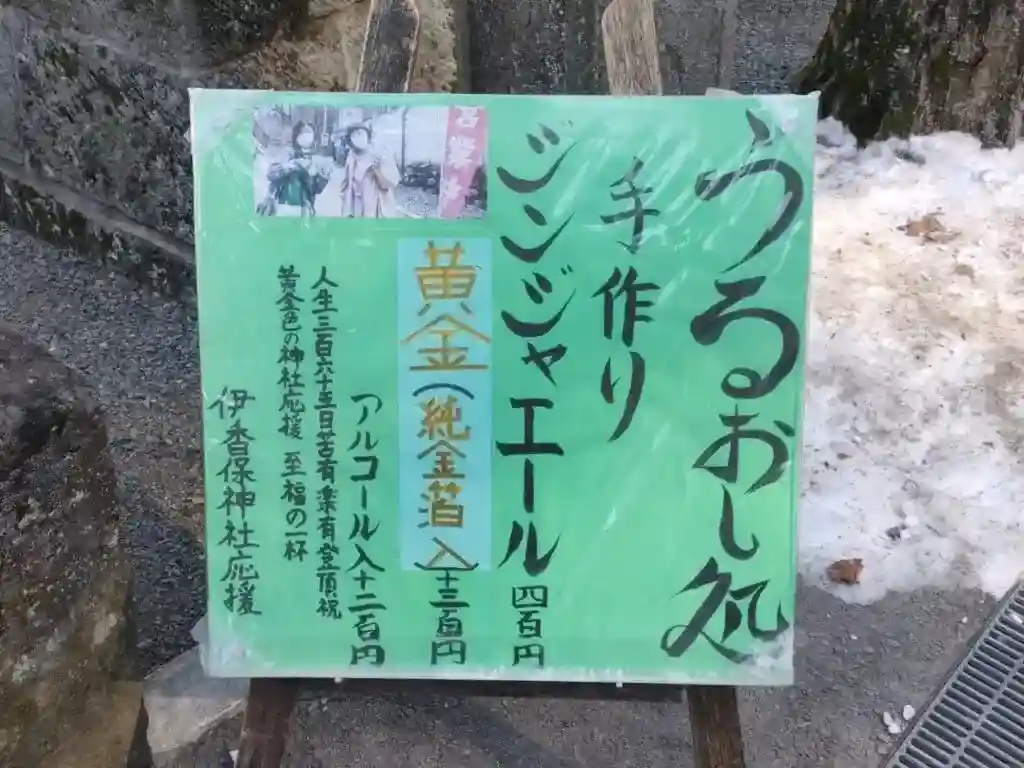 うるおし処
手作り
ジンジャエール 四百円
黄金(純金箔入)十三百円
アルコール入十二百円
人生三百六十五日苦有楽有登頂祝
黄金色の神社応援 至福の一杯
伊香保神社応援